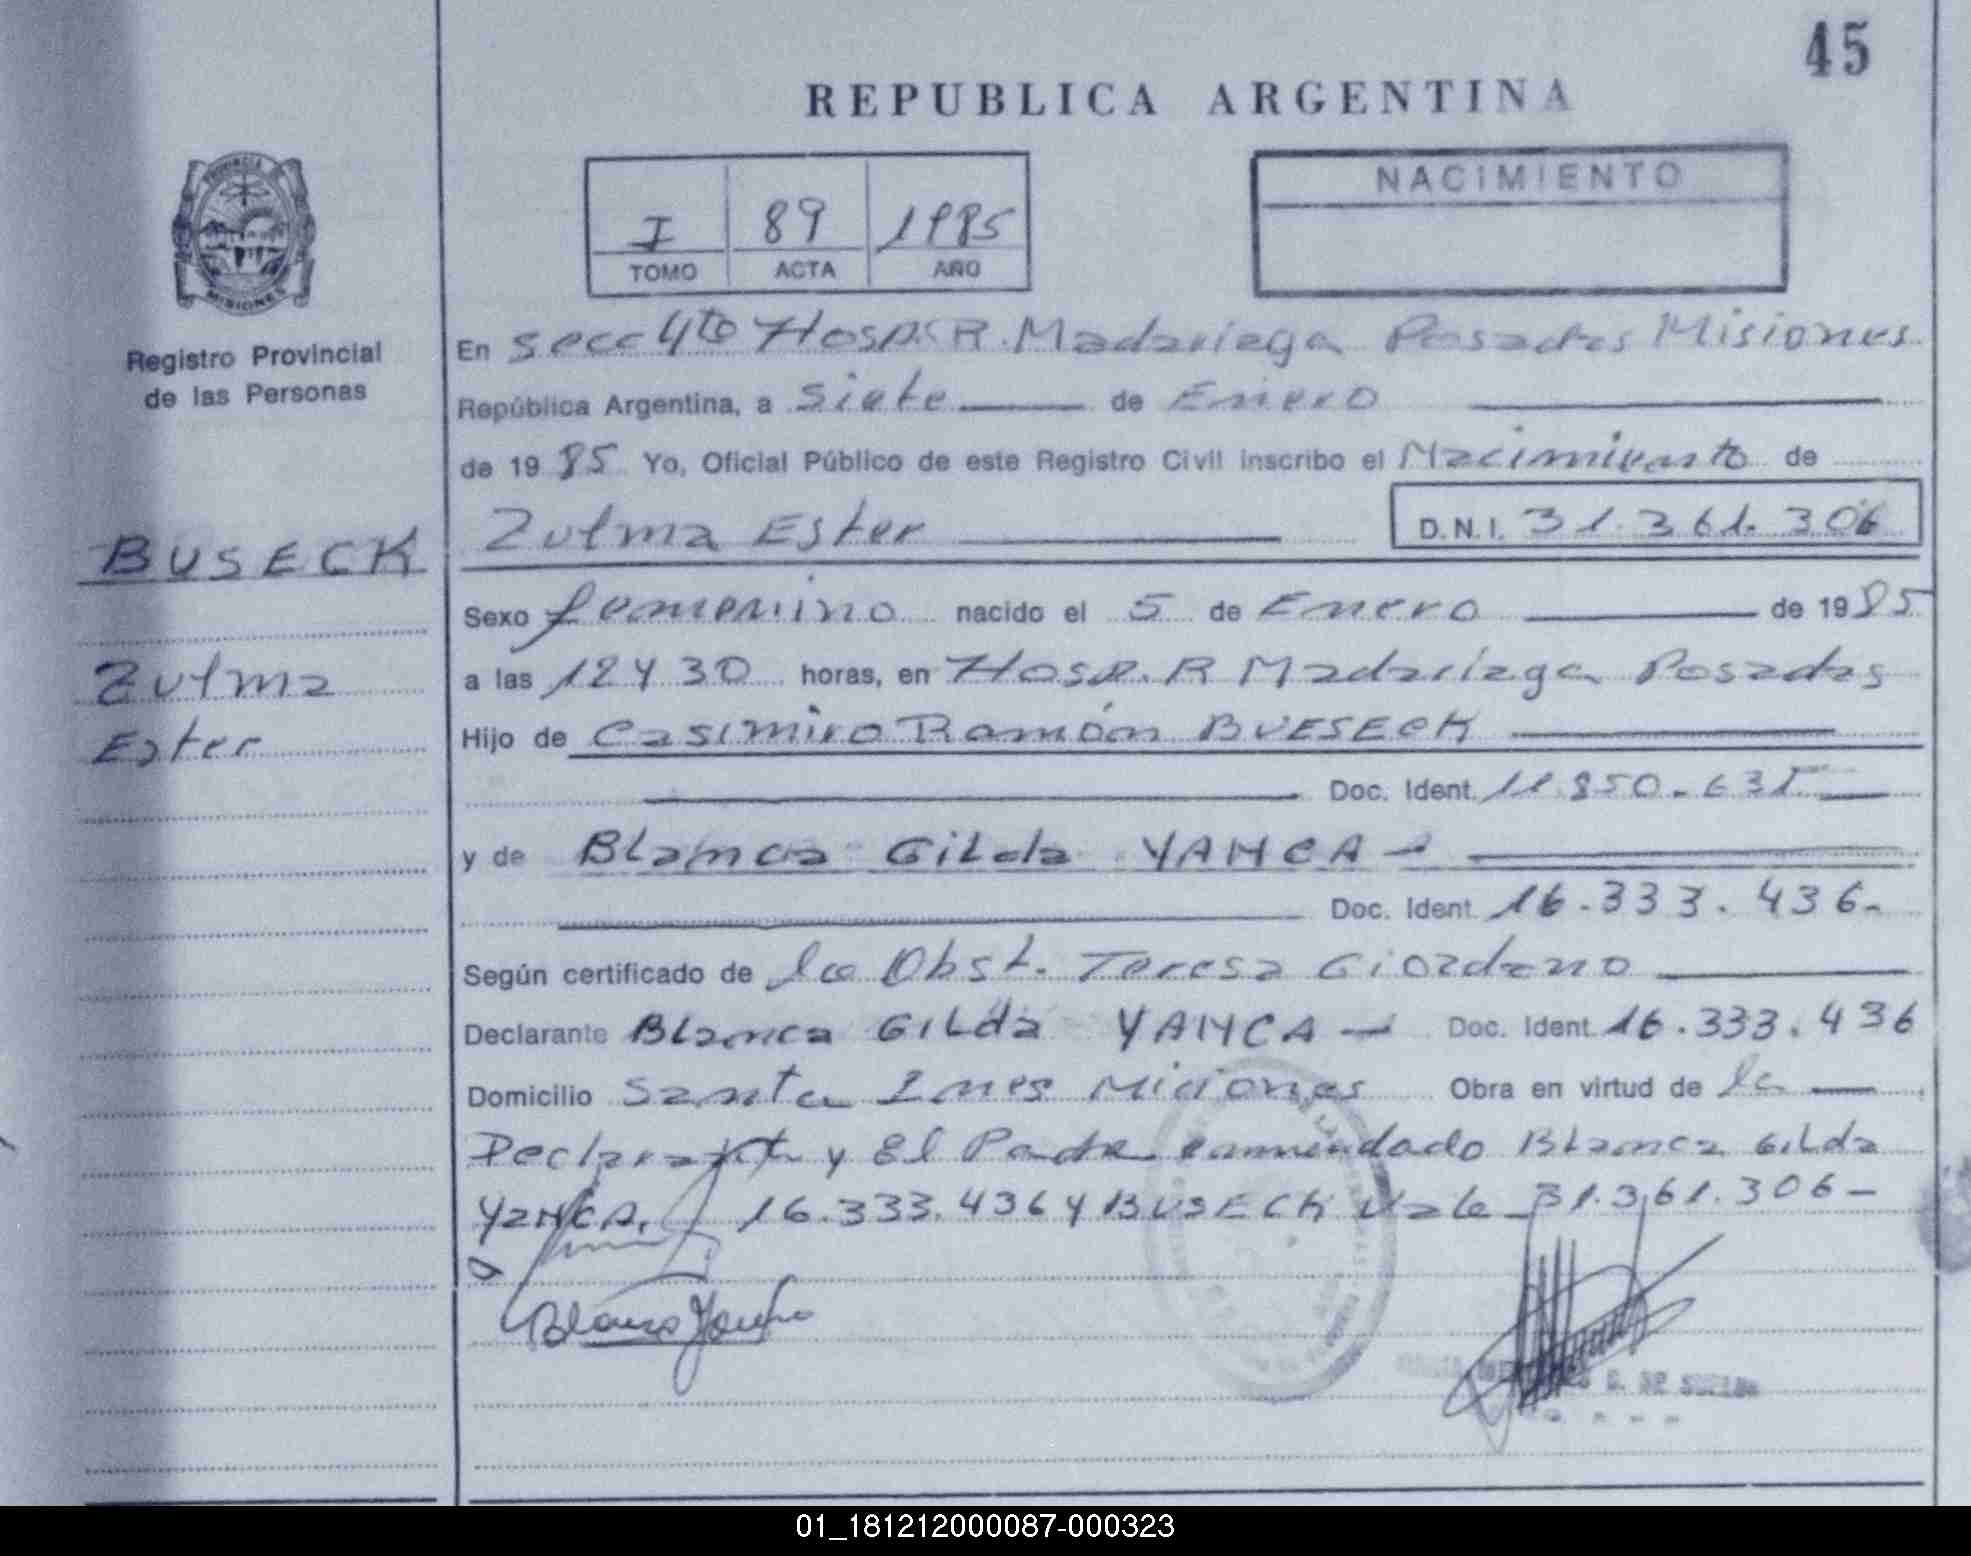 45
REPUBLICA ARGENTINA
PROVINCIA
MISIONES
Registro Provincial
de las Personas
I 89 1985
TOMO ACTA AÑO
NACIMIENTO
En secc 4to Hosp. R. Madariaga Posadas Misiones
República Argentina, a siete de Enero
de 19 85 Yo, Oficial Público de este Registro Civil inscribo el Nacimiento de
BUSECK
Zulma Ester D.N.I. 31.361.306
Sexo femenino nacido el 5 de Enero de 19 85
Zulma
Ester
a las 12 Y 30 horas, en Hosp. R Madariaga Posadas
Hijo de Casimiro Ramón BUESECK
Doc. Ident. 11.850.635
y de Blanca Gilda YANCA
Doc. Ident. 16.333.436
Según certificado de la Obst. Teresa Giordano
Declarante Blanca GILda YANCA Doc. Ident. 16.333.436
Domicilio Santa Ines Miciones Obra en virtud de la
Declarante y El Padre enmendado Blanca Gilda
YANCA, 16.333.436 Y BUSECK Vale 31.361.306
Blanca
01_181212000087-000323